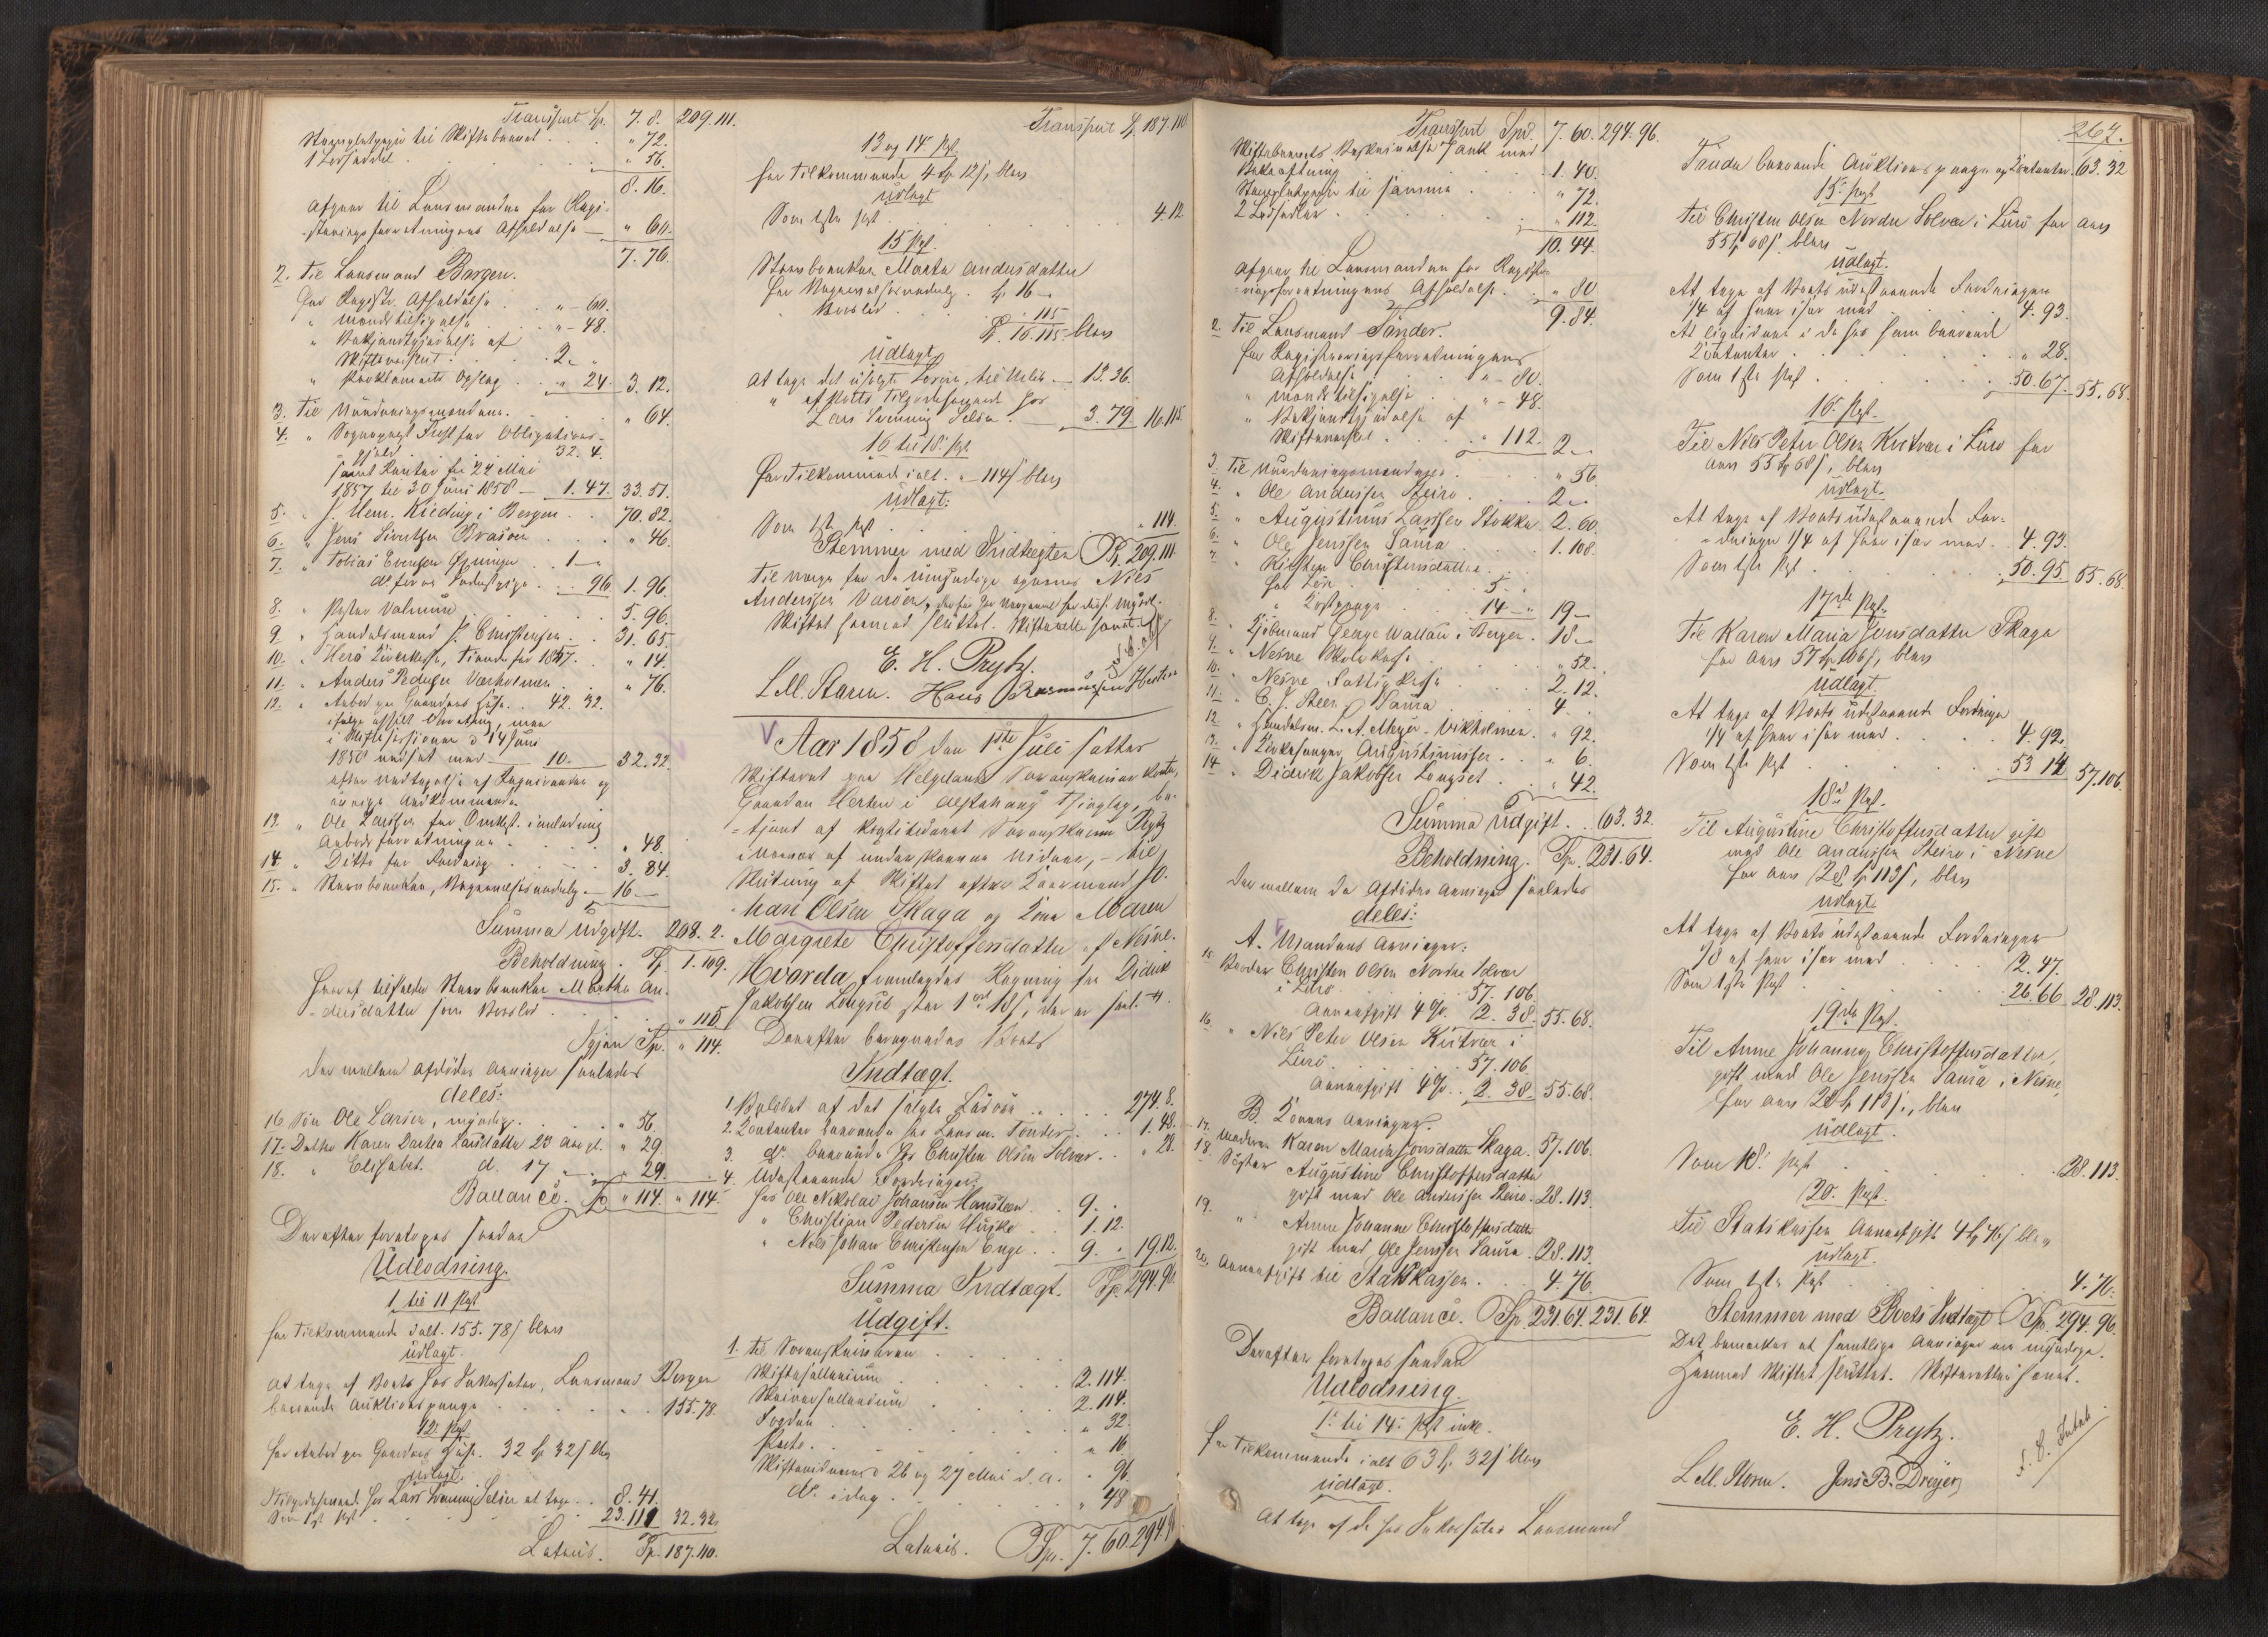 Transport Sp. 7. 8. 209.111.
Stempletpapir til Skiftebrevet . . " 72.
1 Lodseddel . . . " 56.
8. 16.
Afgaar til Lensmanden for Regi-
streringsforretningens Afholdelse — " 60.
7. 76.
2. Til Lensmand Borgen.
For Registr. Afholdelse . " - 60.
" Mands tilsigelse . . " - 48.
" Bekjendtgjørelse af
Skiftereiset . . . 2. "
" Proklamaets Opslag . . " 24. 3. 12.
3. Til Vurderingsmændene. . . " 64.
4. " Sogneprest for Obligations-
gjæld . . . 32. 4.
samt Renter fra 22 Mai
1857 til 30 Juni 1858 — 1. 47. 33. 51.
5. " J. Mem. Krieding i Bergen . . 70. 82.
6. " Jens Sivertsen Brasøen . . . " 46.
7. " Tobias Evensen . . 1 — "
do for en . . . 96 1. 96.
8. " . . . 5. 96.
9. " Handelsmand P. Christensen . . 31. 65.
10. " Herø Kirke, Tiende for 1857. . " 14.
11. " Anders Pedersen Varholmen . . " 76.
12. " Aabod paa Gaardens Huse . . 42. 32.
ifølge afholdt Forretning, men
i Skiftesessionen d. 14 Juni
1858 nedsat med — 10. — 32. 32.
efter Vedtagelse af og
øvrige Vedkommende
13. " Ole Larssen for Omkost. i anledning
Aabodsforretningen . . . " 48.
14. " Ditto for Fordring . . . 3. 84.
15. " Stervboenken, Begravelsesudlæg. — 16 —
Summa Udgift. 208. 2.
Beholdning . Sp. 1. 109.
Heraf tilfalder Stervboenken Martha An-
dersdatter som Boeslod . . . " 115
Igjen Sp. " 114.
der mellem Afdødes Arvinger saaledes
deles:
16 Søn Ole Larsen, myndig. . . . " 56.
17. Datter Karen Dorthea Larsdatter 23 Aar gl. " 29
18. " Elisabet. d. 17 " . " 29.
Ballance. Sp. " 114. " 114.
Derefter foretoges saadan
Udlodning.
1 til 11 Post
For Tilkommende ialt. 155. 78 ß blev
udlagt.
At tage af Boets hos Inkassator, Lensmand Borgen
beroende Auktionspenge . . . . 155. 78.
12. Post
For Aabod paa Gaardens Huse. 32 Sp 32 ß blev
udlagt.
Tilgodehavend. hos Lars Svenning Selsøen at tage . . 8. 41.
Som 1ste Post . . . 23. 111 32. 32.
Lateris. Sp. 187. 110.
Transport Sp. 187. 110.
13 og 14 Post.
For Tilkommende 4 Sp 12 ß, blev
udlagt
Som 1ste Post . . . 4. 12.
15 Post.
Stervboenken Marta Andersdatter
For Begravelsesudlæg . Sp. 16 —
" Boeslod . . . " 115
Sp. 16. 115 blev
udlagt
At tage det usolgte Løsøre, — 13. 36.
" af Boets Tilgodehavende hos
Lars Svenning Selsøen — 3. 79. 16. 115.
16 til 18 Post.
For Tilkommende ialt. " 114 ß blev
udlagt:
Som 1ste Post . . . " 114.
Stemmer med Indtægten Sp. 209. 111.
Til Værge for de umyndige opnævnes Niels
Anderssen Varøen,
Skiftet hermed sluttet. Skifteretten hævet
E. H. Prytz.
L. M. Storm. Hans Rasmussen Hertsen
Aar 1858 den 1ste Juli sattes
Skifteret paa Helgelands Sorenskriver Kontor,
Gaarden Herten i Alstahaug Tinglag, be-
tjent af Constitueret Sorenskriver Prytz
i Nærvær af underskrevne Vidner, — til
Slutning af Skiftet efter Kaarmand Jo-
han Olsen Skaga og Kone Maren
Margrete Christoffersdatter af Nesne.
Hvorda fremlagdes Regning fra Didrik
Jakobsen Longset stor 1 ort 18 ß, der er saal. H.
Derefter beregnedes Boets
Indtægt.
1. Beløbet af det solgte Løsøre . . . 274. 8.
2. Kontanter beroende hos Lensm. Tønder . . 1. 48.
3. do beroende hos Christen Olsen Solvær . . " 28.
4. Udestaaende Fordringer:
hos Ole Nikolai Johansen Hansteen . . 9. "
" Christian Pedersen Husby . . 1. 12.
" Nils Johan Christensen Enge . . 9. " 19. 12.
Summa Indtægt. Sp. 294. 96.
Udgift.
1. Til Sorenskriveren
Skiftesallarium . . . 2. 114.
Skriversallarium . . . 2. 114.
Fogden . . . " 32.
Porto . . . " 16.
Skiftevidnerne 26 og 27 Mai d. A. . " 96.
do. idag . . . " 48
Lateris. Sp. 7. 60. 294. 96
267.
Transport Spd. 7. 60. 294. 96.
Skiftebrevets Beskrivelse 7 Ark med
Bekræftning . . . 1. 40.
Stempletpapir til samme . . " 72.
2 Lodsedler . . . " 112.
10. 44.
Afgaar til Lensmanden for Registre-
ringsforretningens Afholdelse . . " 80
9. 84.
2. Til Lensmand Tønder.
For Registreringsforretningens
Afholdelse . . " - 80.
" Mands tilsigelse . . " - 48.
" Bekjendtgjørelse af
Skiftereiset . . . " 112. 2 — "
3. Til Vurderingsmændene . . . " 56
4. " Ole Anderssen Steiro . . 2 — "
5. " Augustinus Larssen Stokke . 2. 60
6. " Ole Jenssen Saura . . . 1. 108.
7. " Kirsten Christensdatter . .
For Løn . . . 5 . "
" Kostpenge . . . 14 — " 19 —
8. " Kjøbmand George Wallau i Bergen . 18 — "
9. " Nesne Skolekasse . . . " 52.
10. " Nesne Fattigkasse . . . 2. 12.
11. " C. J. Steen, Saura . . 4. "
12. " Handelsm. L. A. Meyer - Vikholmen . " 92.
13. " Kirkesanger Augustinussen . . " 6.
14. " Didrik Jakobsen Longset . . " 42.
Summa Udgift . . 63. 32.
Beholdning. Sp. 231. 64.
der mellem de Afdødes Arvinger saaledes
deles:
A. Mandens Arvinger:
15. Broder Christen Olsen Nordre Solvær
i Lurø . . . 57. 106
Arveafgift 4 %. 2. 38. 55. 68.
16. " Niels Peter Olsen Kvitvær i
Lurø . . . 57. 106
Arveafgift 4 % . . 2. 38. 55. 68.
B. Konens Arvinger.
17. Moderen Karen Maria Jonsdatter Skaga . 57. 106.
18. Søster Augustine Christoffersdatter
gift med Ole Anderssen Steiro . 28. 113.
19. " Anne Johanne Christoffersdatter
gift med Ole Jenssen Saura . 28. 113.
20. Arveafgift til Statskassen . . . 4. 76.
Ballance. Sp. 231. 64. 231. 64.
Derefter foretoges saadan
Udlodning.
1ste til 14de Post inkl.
For Tilkommende ialt 63 Sp. 32 ß blev
udlagt.
At tage af de hos Inkassator Lensmand
Tønder beroende Auktionspenge og Kontanter. 63. 32
15 Post
Til Christen Olsen Nordre Solvær i Lurø for Arv
55 Sp 68 ß blev
udlagt.
At tage af Boets udestaaende Fordringer
1/4 af hver især med . . . 4. 93.
At liqvidere i de hos ham beroende
Kontanter . . . " 28.
Som 1ste Post . . . 50. 67. 55. 68.
16. Post.
Til Niels Peter Olsen Kvitvær i Lurø for
Arv 55 Sp 68 ß, blev
udlagt.
At tage af Boets udestaaende For-
dringer 1/4 af hver især med . . 4. 93.
Som 1ste Post . . . 50. 95 55. 68.
17de Post.
Til Karen Maria Jonsdatter Skaga
for Arv 57 Sp 106 ß, blev
udlagt
At tage af Boets udestaaende Fordringer
1/4 af hver især med . . . 4. 92.
Som 1ste Post . . . 53 14 57. 106.
18de Post.
Til Augustine Christoffersdatter gift
med Ole Anderssen Steiro i Nesne
for Arv 28 Sp 113 ß, blev
udlagt.
At tage af Boets udestaaende Fordringer
1/8 af hver især med . . . 2. 47.
Som 1ste Post . . . 26. 66 28. 113.
19de Post.
Til Anne Johanna Christoffersdatter,
gift med Ole Jenssen Saura i Nesne,
for Arv 28 Sp 113 ß., blev
udlagt.
Som 18. Post . . . 28. 113.
20. Post.
Til Statskassen Arveafgift 4 Sp 76 ß blev
udlagt.
Som 1ste Post . . . 4. 76.
Stemmer med Boets Indtægt Sp. 294. 96.
Det bemærkes at samtlige Arvinger ere myndige.
Hermed Skiftet sluttet. Skifteretten hævet.
E. H. Prytz.
L. M. Storm. Jens B. Dreyer